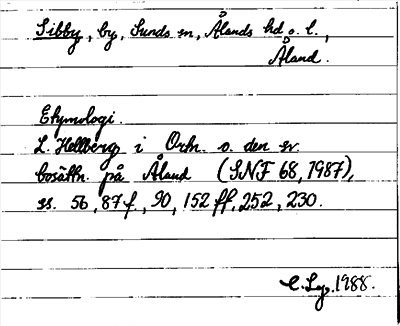 Sibby, by, Sunds sn, Ålands hd o. l.,
Åland.
Etymologi.
L. Hellberg i Ortn. o. den sv.
bosättn. på Åland (SNF 68, 1987),
ss. 56, 87 f., 90, 152 ff, 252, 230.
1988.